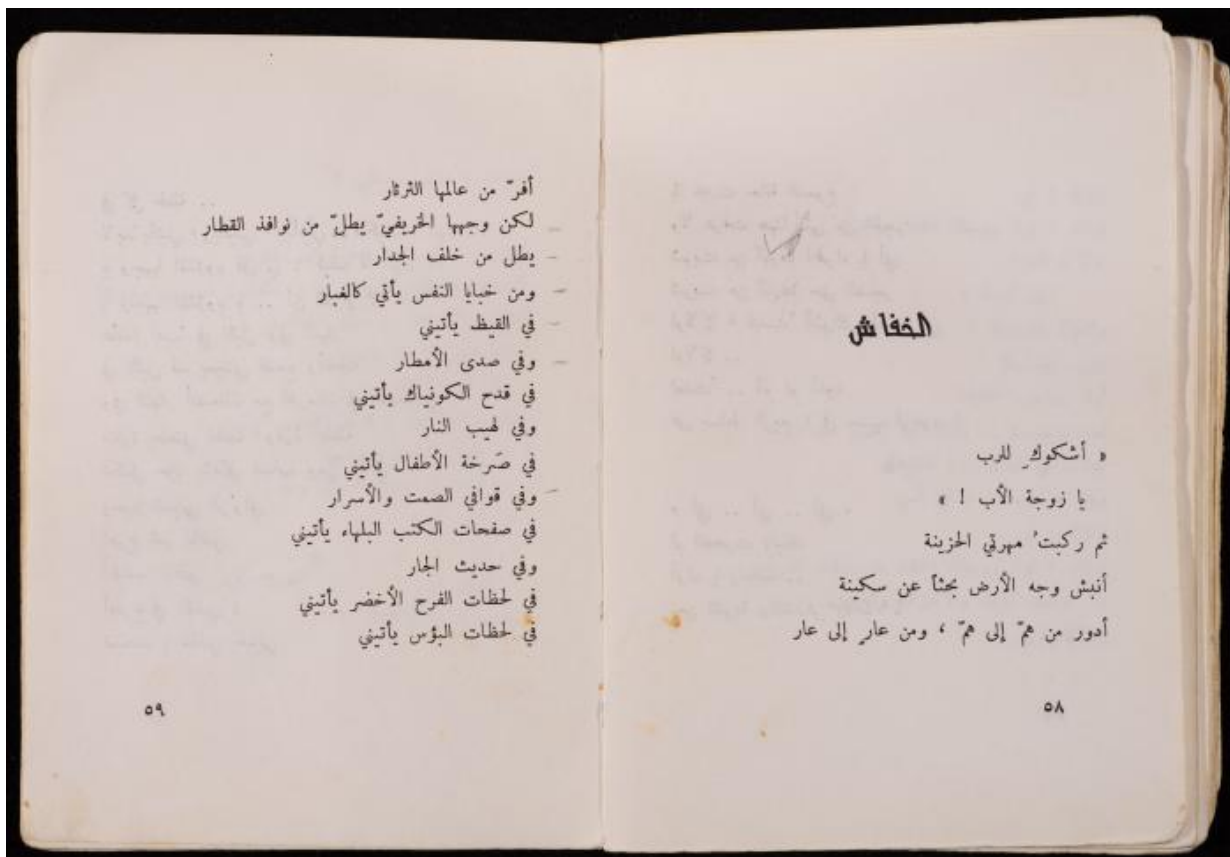 الخفاش
« أشكوكِ للرب
يا زوجة الأب ! »
ثم ركبتُ مهرتي الحزينة
أنبش وجه الأرض بحثاً عن سكينة
أدور من همّ إلى همّ ، ومن عارٍ إلى عار
٥٨
أفرّ من عالمها الثرثار
لكن وجهها الخريفيّ يطلّ من نوافذ القطار
يطل من خلف الجدار
ومن خبايا النفس يأتي كالغبار
في القيظ يأتيني
وفي صدى الأمطار
في قدح الكونياك يأتيني
وفي لهيب النار
في صَرخة الأطفال يأتيني
وفي قوافي الصمت والأسرار
في صفحات الكتب البلهاء يأتيني
وفي حديث الجار
في لحظات الفرح الأخضر يأتيني
في لحظات البؤس يأتيني
٥٩